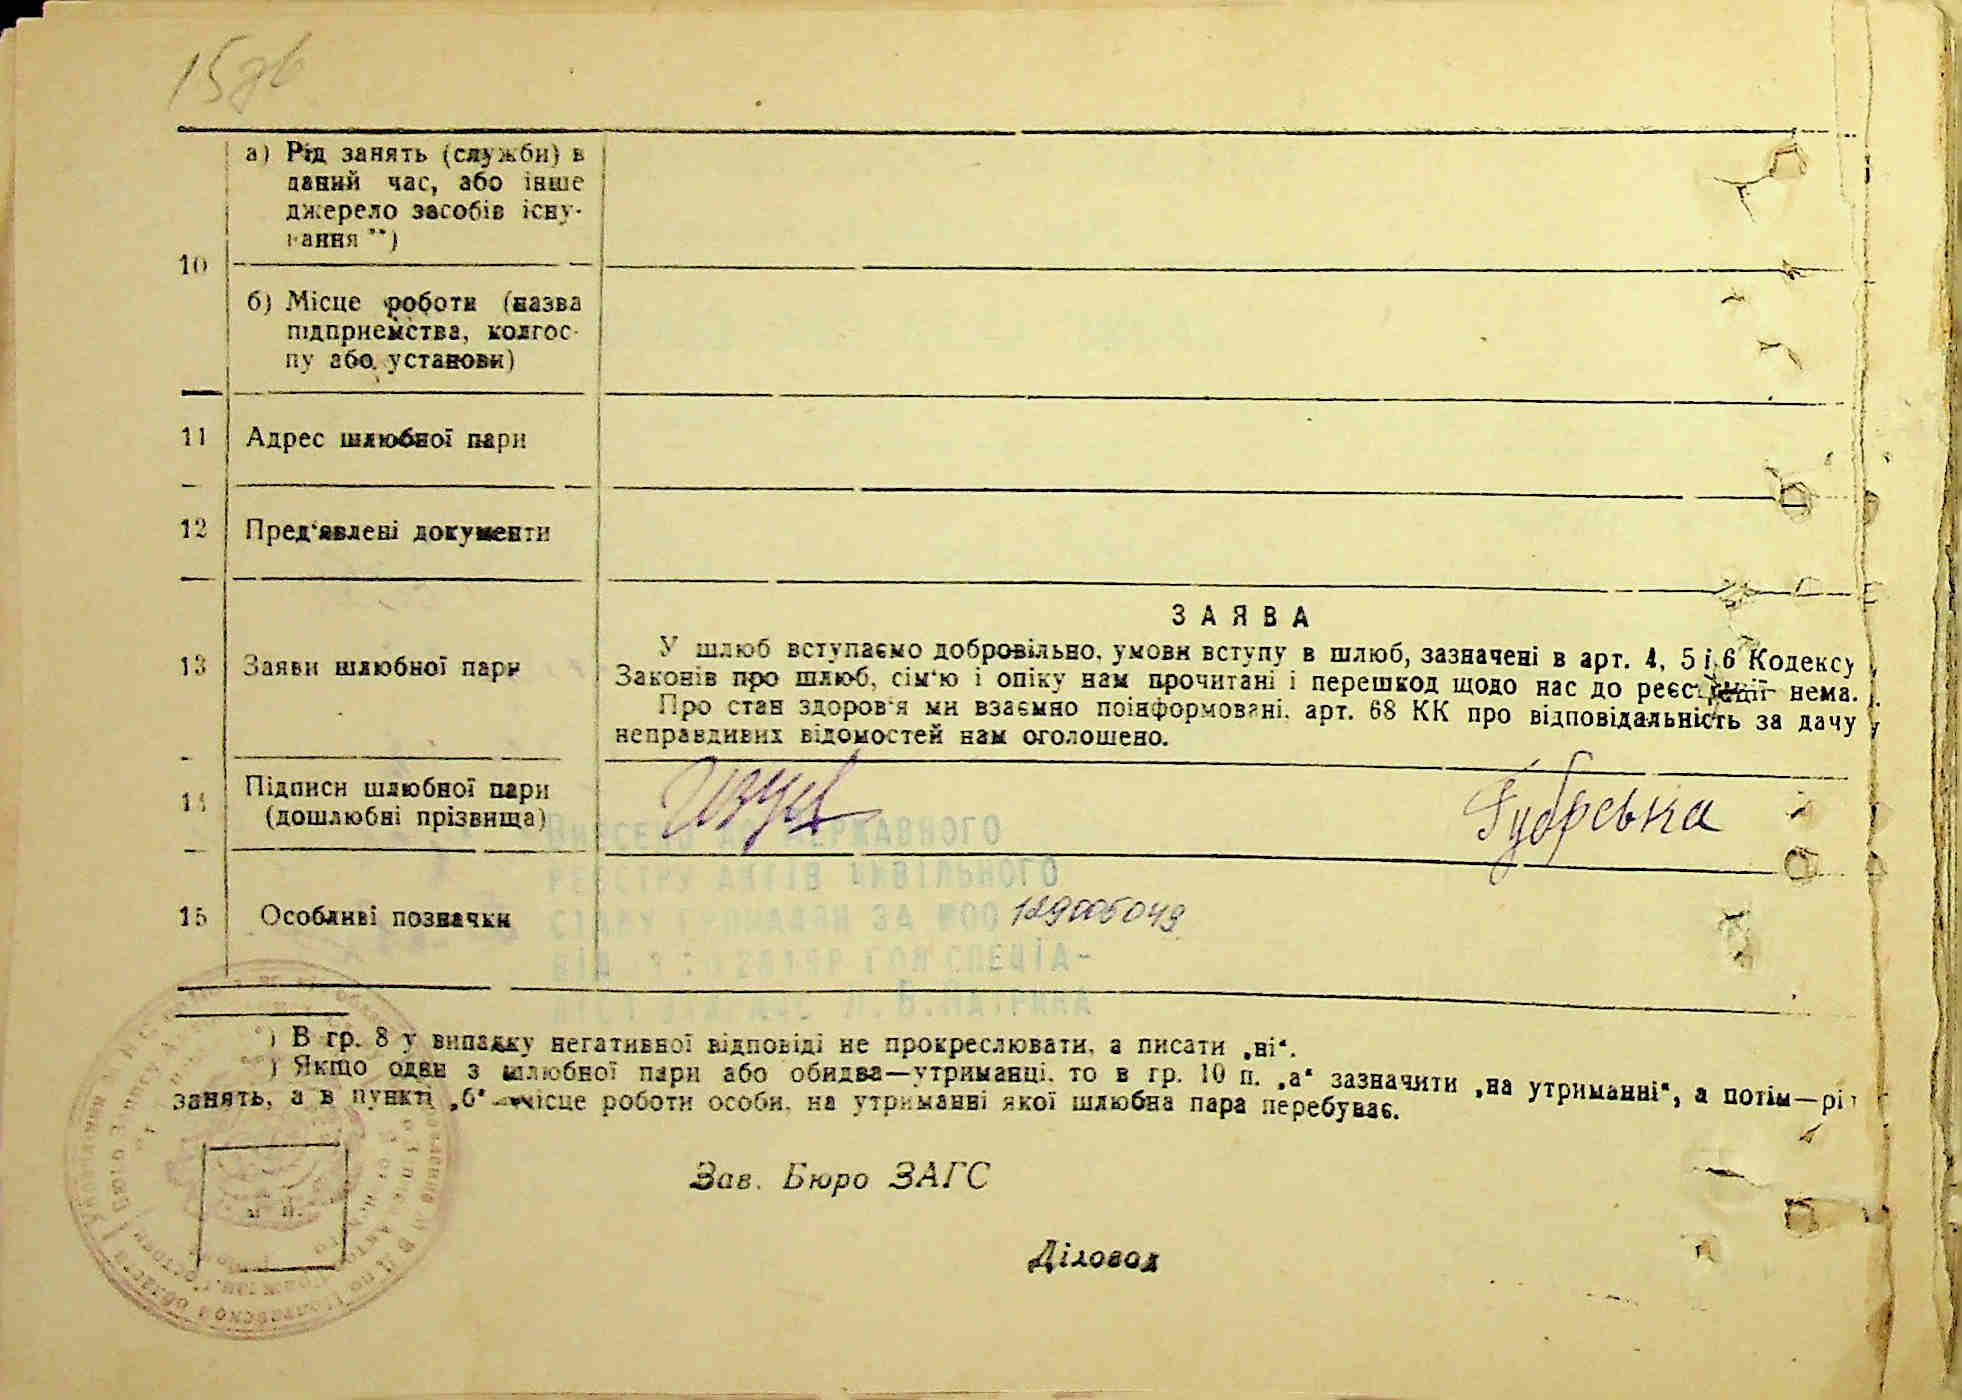 15зв
а) Рід занять (служби) в
даний час, або інше
джерело засобів існу-
вання **)
10
б) Місце роботи (назва
підприємства, колгос-
пу або установи)
11 Адрес шлюбної пари
12 Пред'явлені документи
ЗАЯВА
У шлюб вступаємо добровільно, умови вступу в шлюб, зазначені в арт. 4, 5 і 6 Кодексу
13 Заяви шлюбної пари
Законів про шлюб, сім'ю і опіку нам прочитані і перешкод щодо нас до реєстрації нема.
Про стан здоров'я ми взаємно поінформовані, арт. 68 КК про відповідальність за дачу
неправдивих відомостей нам оголошено.
14 Підписи шлюбної пари
(дошлюбні прізвища)
Внесено до Державного
реєстру актів цивільного
15 Особливі позначки
стану громадян за №00 129005049
від 2019р гол спеціа-
ліст Л.В.
*) В гр. 8 у випадку негативної відповіді не прокреслювати, а писати „ні“.
) Якщо один з шлюбної пари або обидва—утриманці, то в гр. 10 п. „а“ зазначити „на утриманні“, а потім—рі
занять, а в пункті „б“—місце роботи особи, на утриманні якої шлюбна пара перебуває.
М. П.
Зав. Бюро ЗАГС
Діловод